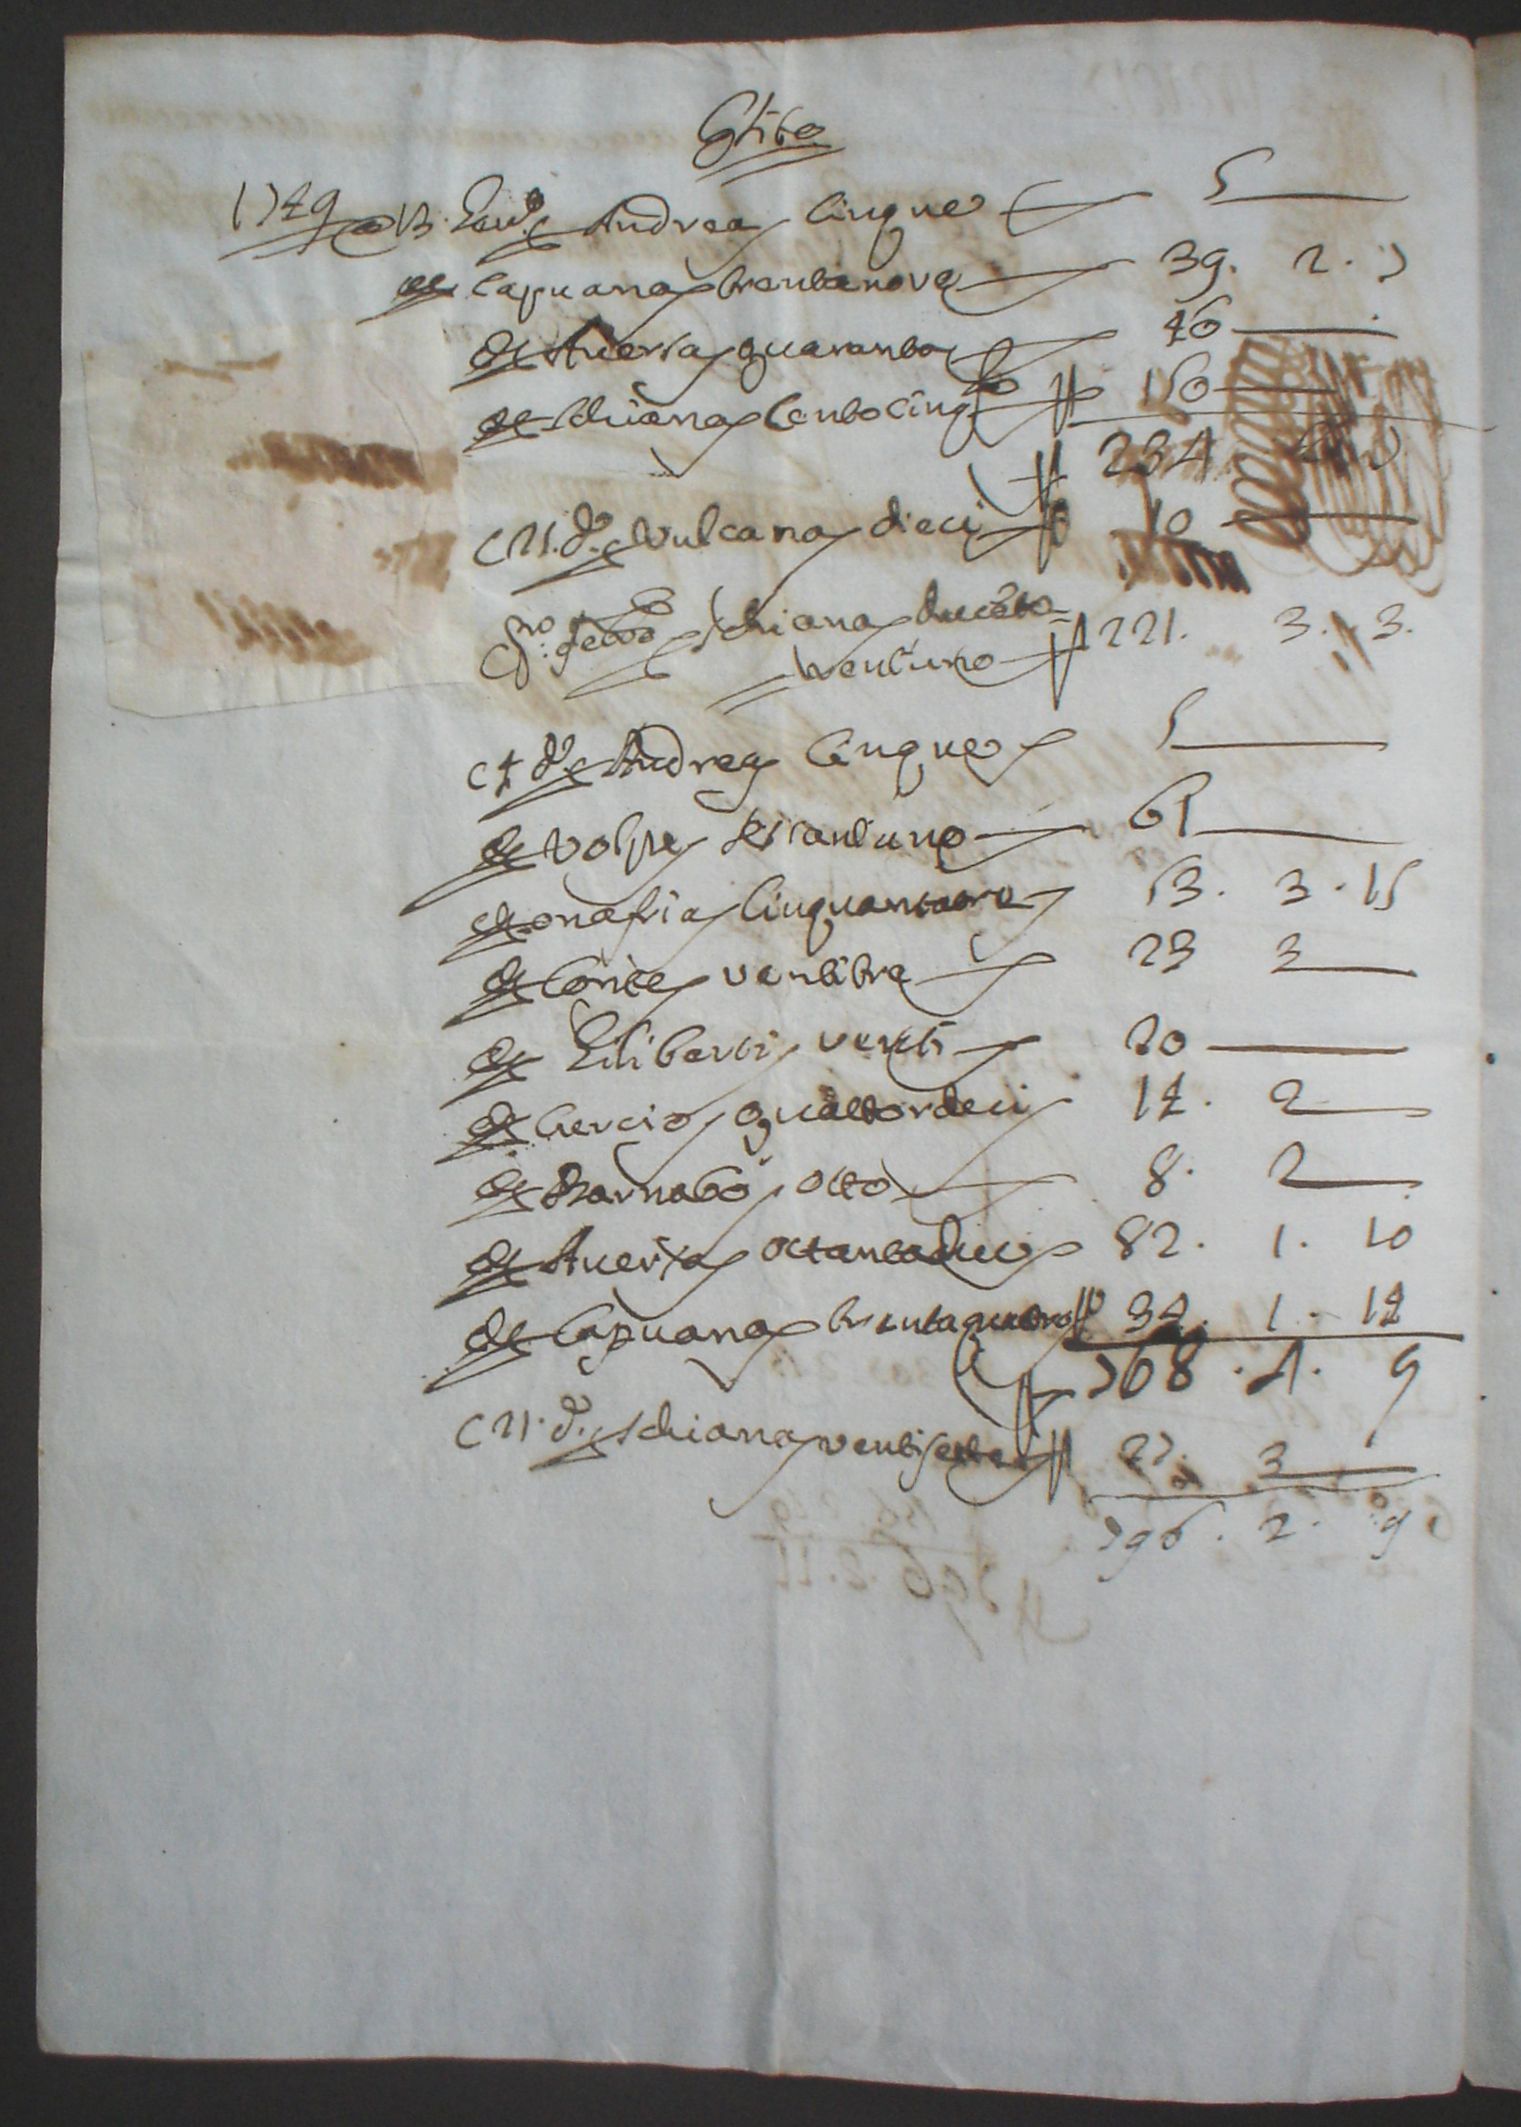 Esito
1749 a 13 Andrea Cinque 5
Capuana trentanove 39. 2. 7
Auersa quaranta 40
Schiana Cento cinq.ta 150
234
a 21. d.o Vulcana dieci 10
Schiana ducento
ventuno 221. 3. 3.
d.o Andrea Cinque 5
Volpe sesantuno 61
onofria Cinquantatre 53. 3. 15
Conte ventitre 23 3
Liliberti venti 20
Curcio quattordeci 14. 2
Barnabò otto 8. 2
Auersa ottantadue 82. 1. 10
Capuana trentaquattro 34. 1. 14
768. 4. 9
a 21. d.o Schiana ventisette 27. 3
796. 2. 9